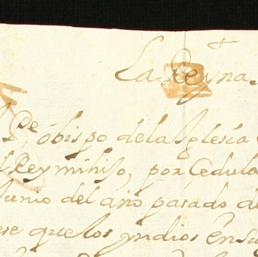 La Reyna
Rde obispo de la Iglesia
el Rey mi hijo, por Cedula
Junio del año pasado de
ese que los yndios en su